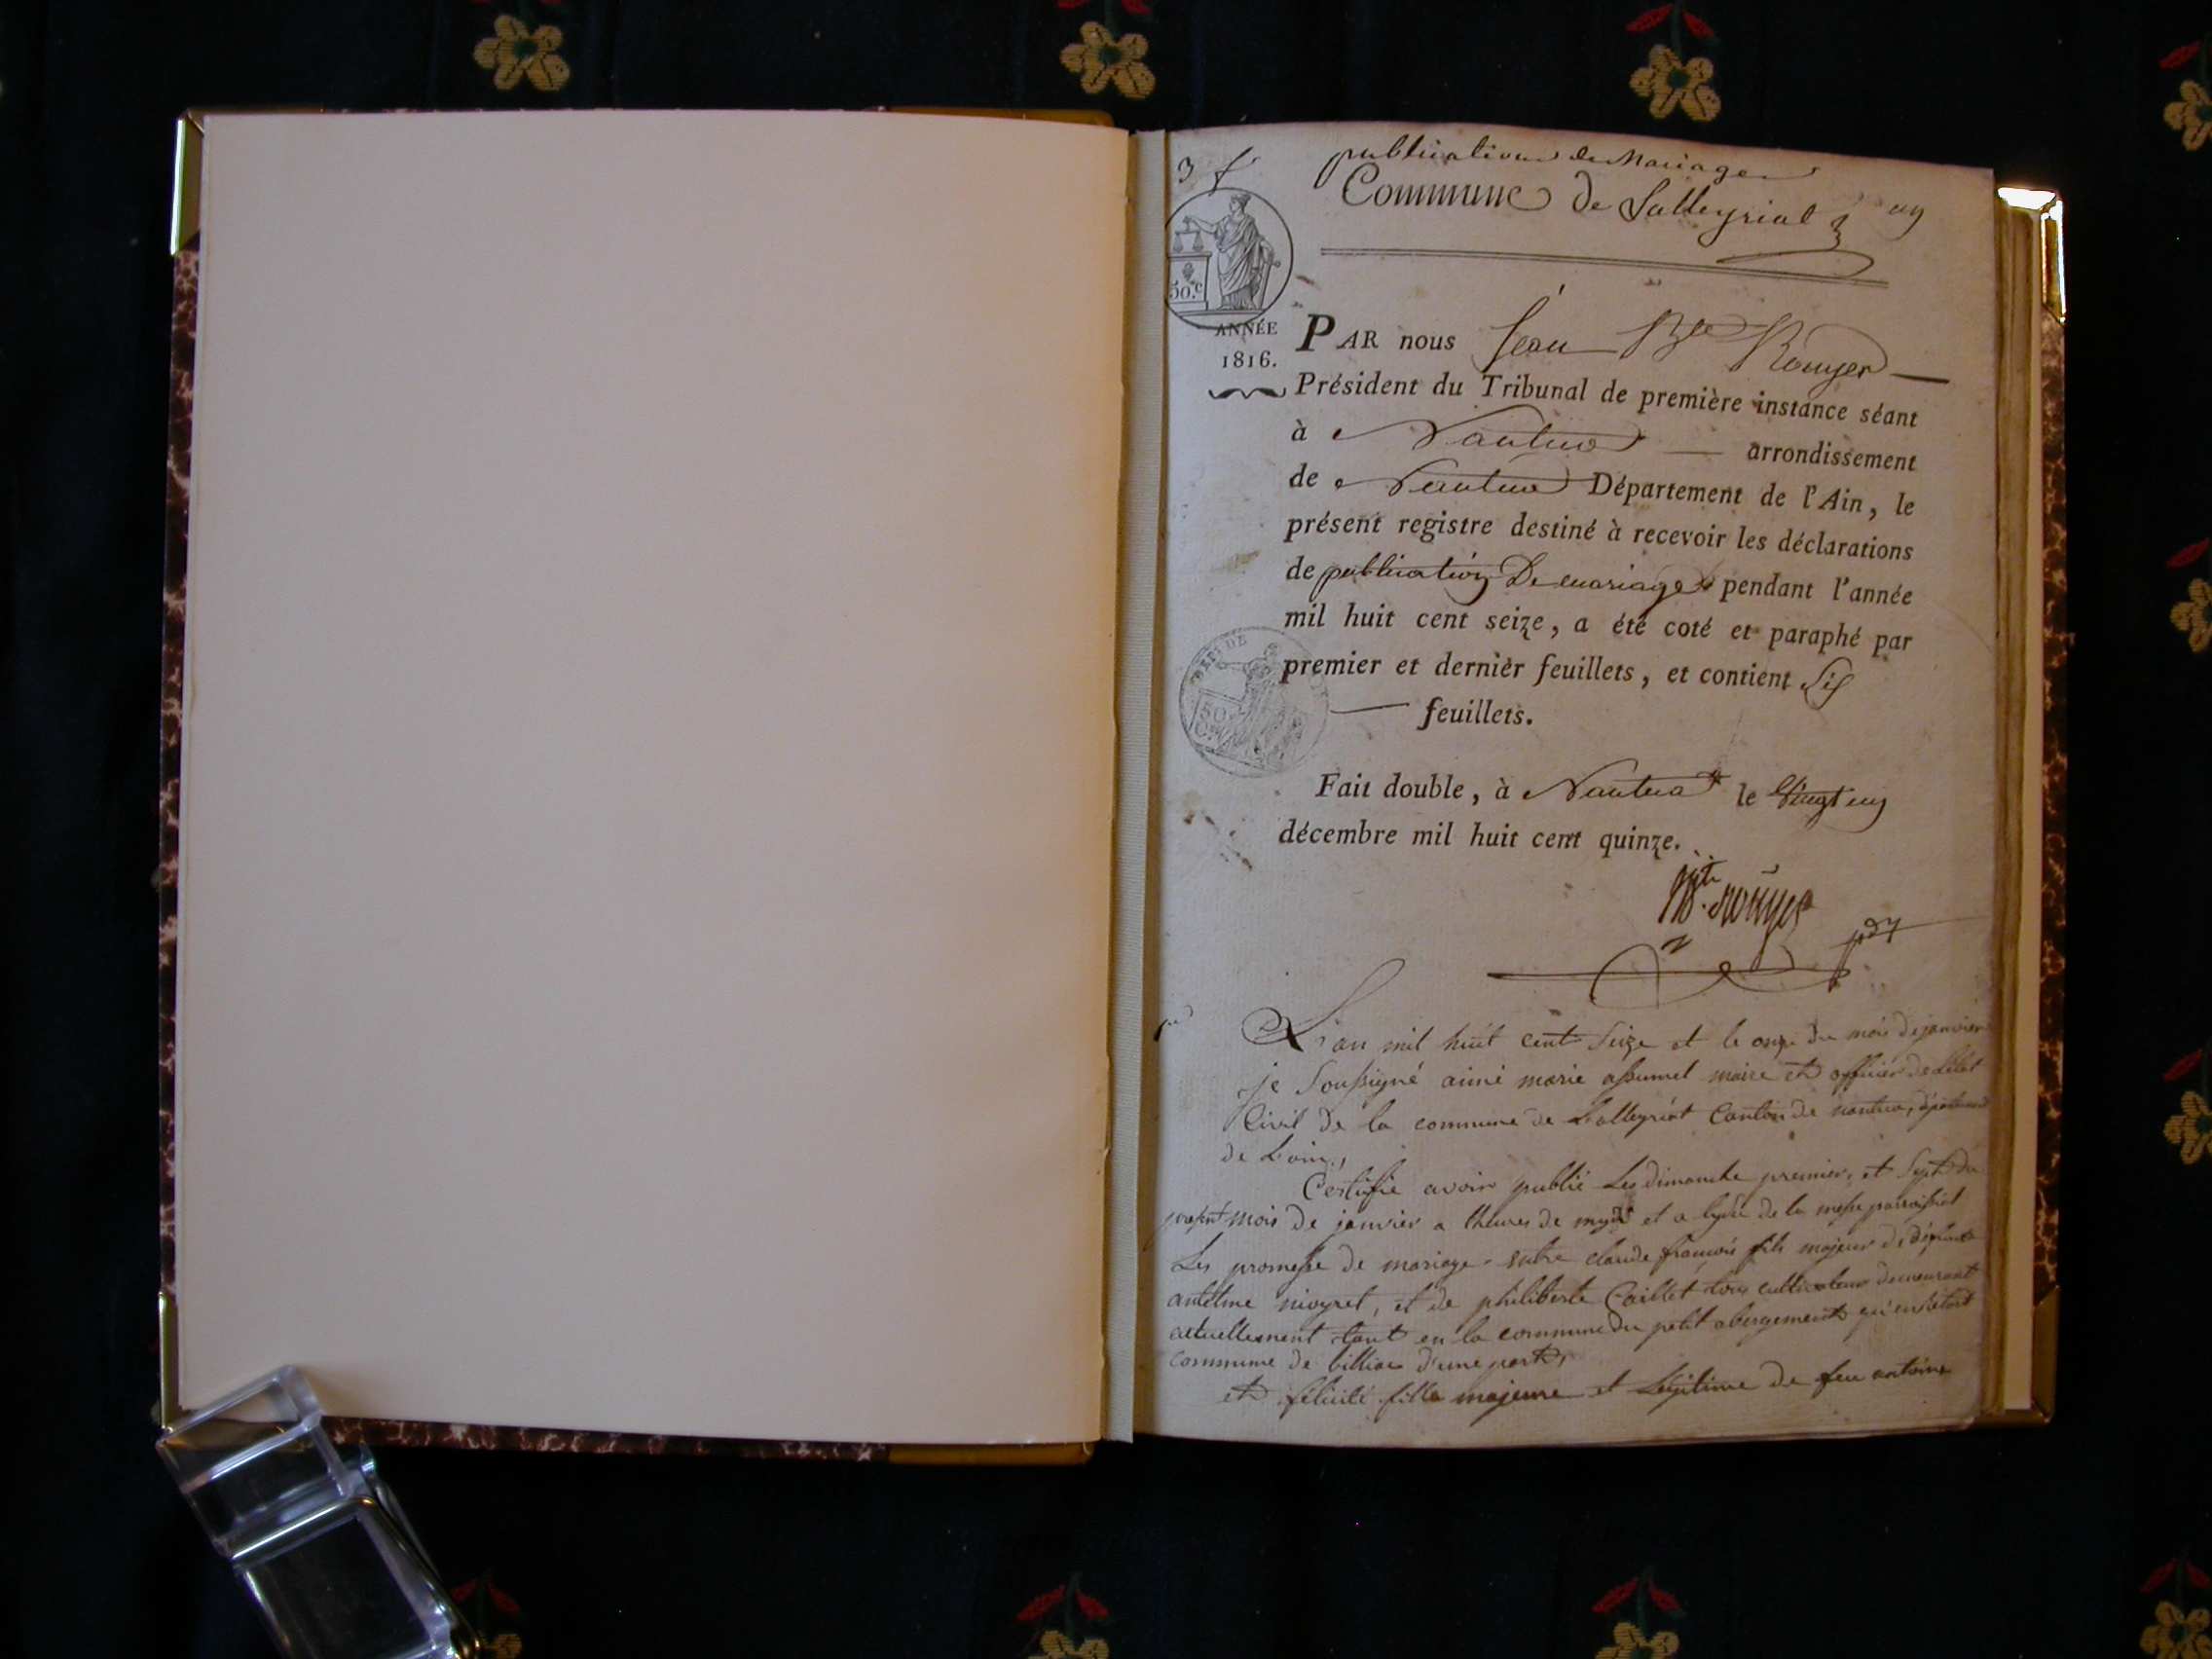 3 f
publications de Mariages
Commune de Lalleyriat un
50.c
ANNÉE
1816.
PAR nous Jean Bte Rouyer
Président du Tribunal de première instance séant
à Nantua arrondissement
de Nantua Département de l'Ain, le
présent registre destiné à recevoir les déclarations
de publication De mariages pendant l'année
mil huit cent seize, a été coté et paraphé par
premier et dernier feuillets, et contient Six
feuillets.
Fait double, à Nantua le Vingt un
décembre mil huit cent quinze.
Bte Rouyer
pdt
L'an mil huit cent Seize et le onze du mois de janvier
je Soussigné aimé marie assumel maire et officier de Létat
Civil de la commune de Lalleyriat Canton de nantua, département
de Lain,
Certifie avoir publié Les dimanche premier, et Sept du
présent mois de janvier a lheure de midi et a lissue de la messe parroissial
Les promesse de mariage entre claude françois fils majeur de défunt
antelme nivyret, et de philiberte Caillet tous cultivateur demeurant
actuellement tant en la commune du petit abergement qu'en
commune de billiac d'une part,
et félicité fille majeure et Légitime de feu antoine